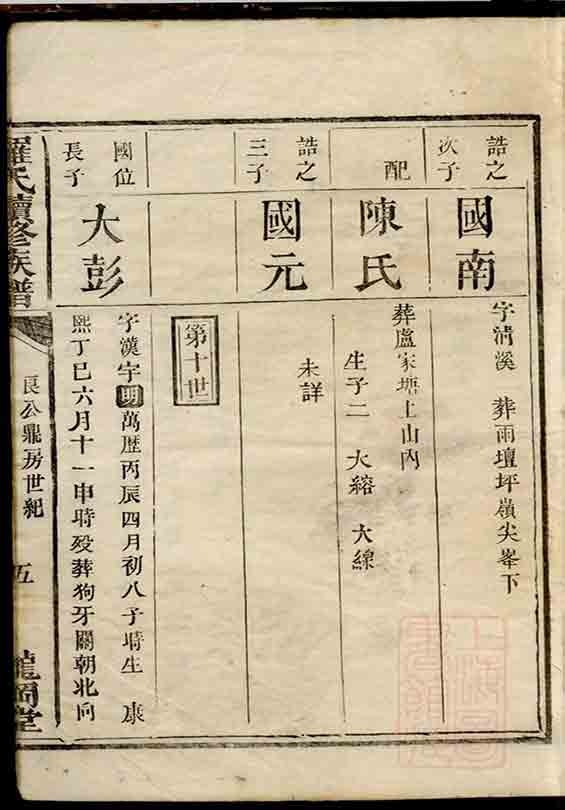 誥之
次子
國南
字清溪 葬雨壇坪嶺尖峯下
配
陳氏
葬盧家塘上山內
生子二 大縮 大線
誥之
三子
國元
未詳
第十世
國位
長子
大彭
字漢宇明萬歷丙辰四月初八子時生 康
熙丁巳六月十一申時歿葬狗牙關朝北向
羅氏續修族譜
良公鼎房世紀
五
龍岡堂